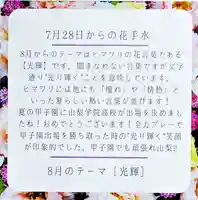 7月28日からの花手水
8月からのテーマはヒマワリの花言葉である
【光輝】です。聞きなれない言葉ですが文字
通り"光り輝く"ことを意味しています。
ヒマワリには他にも「憧れ」や「情熱」と
いった夏らしい熱い言葉が並びます!
夏の甲子園に山梨学院高校が出場を決めまし
たね!おめでとうございます!全力プレーで
甲子園出場を勝ち取った時の"光り輝く"笑顔
が印象的でした。甲子園でも頑張れ山梨!!
8月のテーマ【光輝】